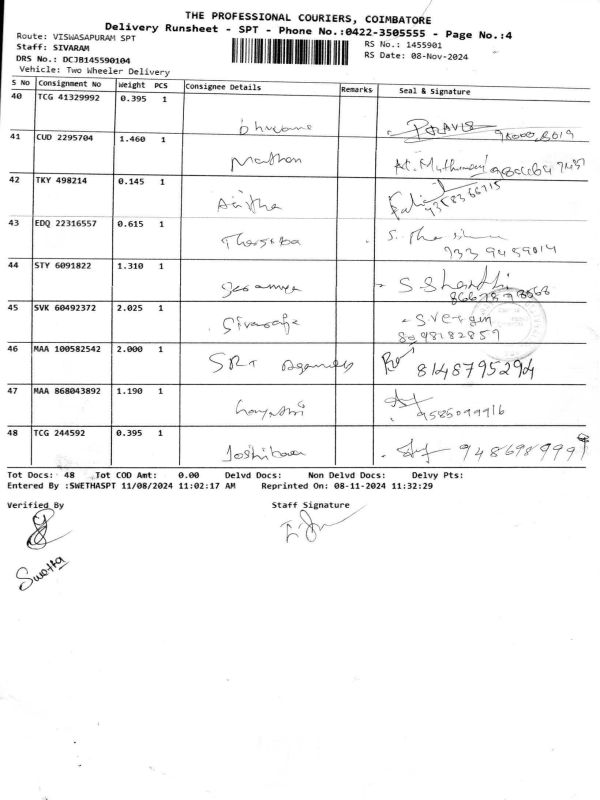 THE PROFESSIONAL COURIERS, COIMBATORE
Delivery Runsheet - SPT - Phone No.:0422-3505555 - Page No.:4
Route: VISWASAPURAM SPT
RS No.: 1455901
Staff: SIVARAM
RS Date: 08-Nov-2024
DRS No.: DCJB145590104
Vehicle: Two Wheeler Delivery
S No Consignment No Weight PCS Consignee Details Remarks Seal & Signature
40 TCG 41329992 0.395 1
41 CUD 2295704 1.460 1
42 TKY 498214 0.145 1
Anitha
9358366715
43 EDQ 22316557 0.615 1
44 STY 6091822 1.310 1
S. Shanthi
45 SVK 60492372 2.025 1
8098182859
46 MAA 100582542 2.000 1
SRT Agamcy
8148795294
47 MAA 868043892 1.190 1
9585099916
48 TCG 244592 0.395 1
Tot Docs: 48 Tot COD Amt: 0.00 Delvd Docs: Non Delvd Docs: Delvy Pts:
Entered By :SWETHASPT 11/08/2024 11:02:17 AM Reprinted On: 08-11-2024 11:32:29
Verified By Staff Signature
Swetha